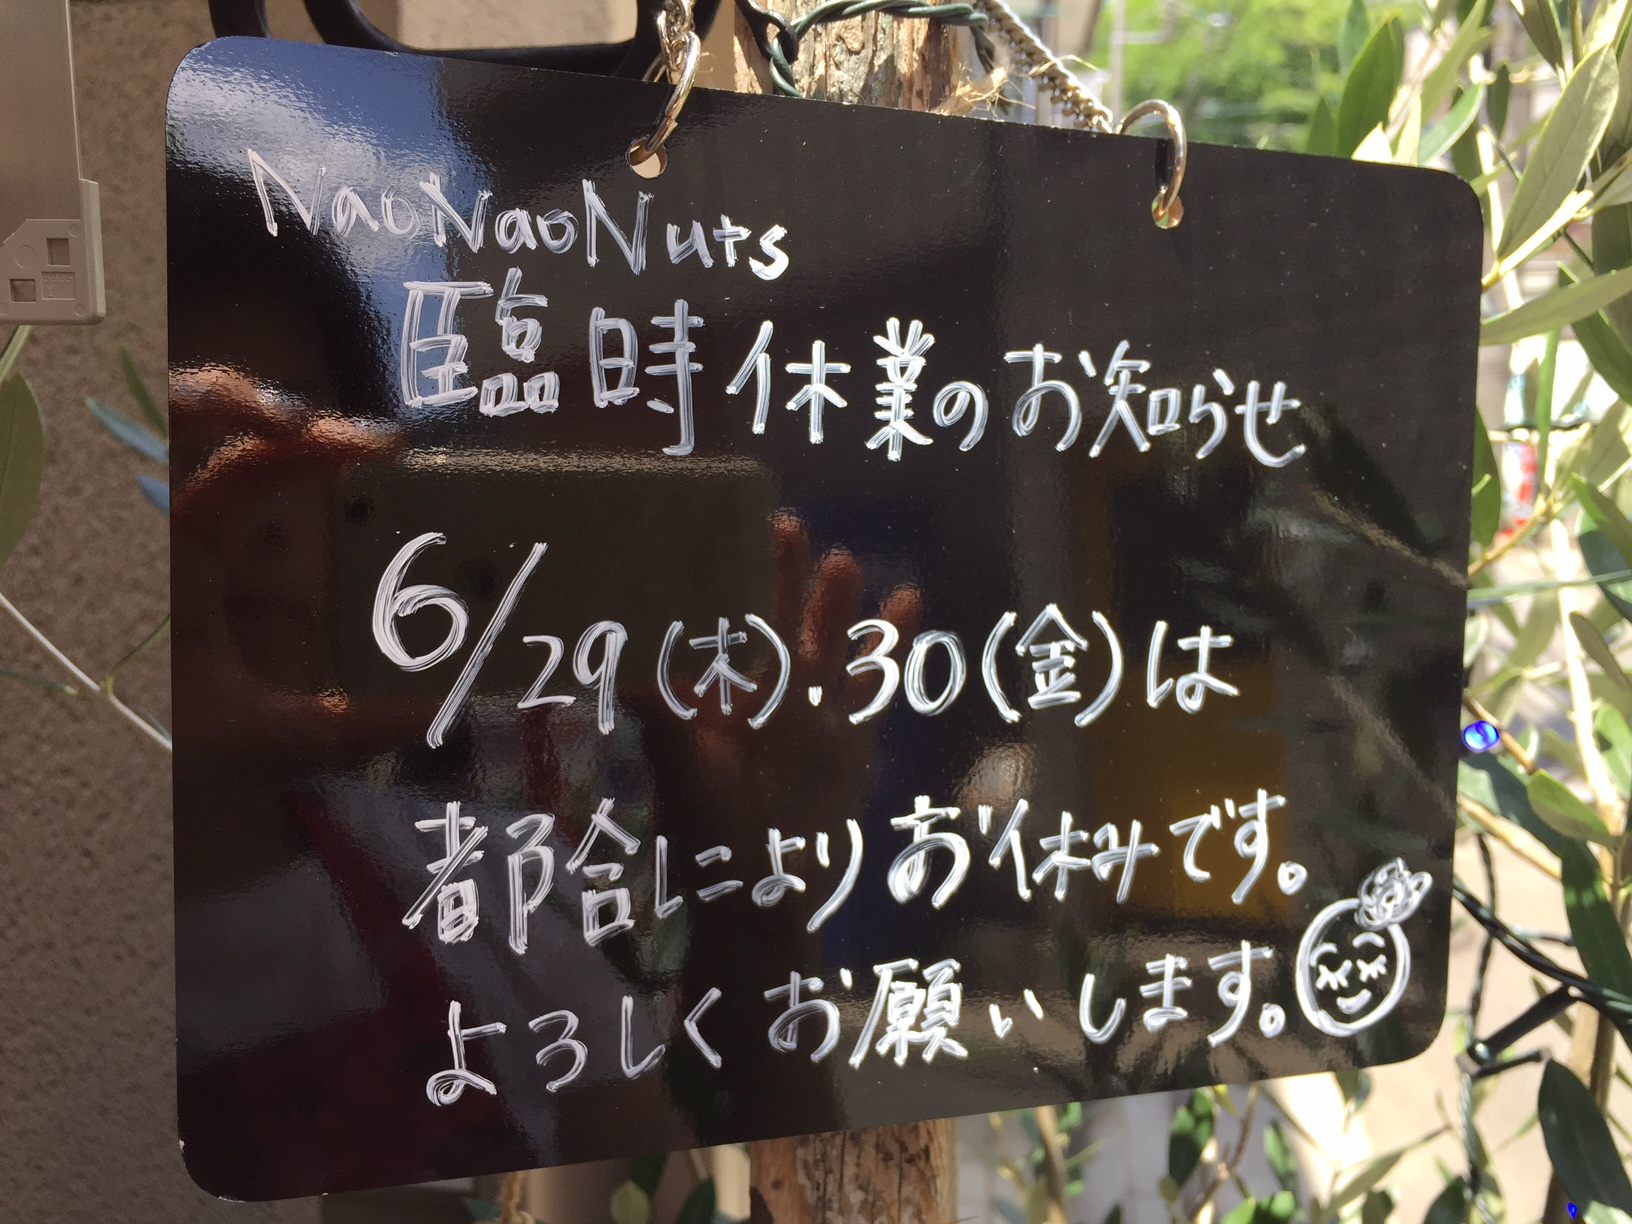 NaoNaoNuts
臨時休業のお知らせ
6/29(木).30(金)は
都合によりお休みです。
よろしくお願いします。